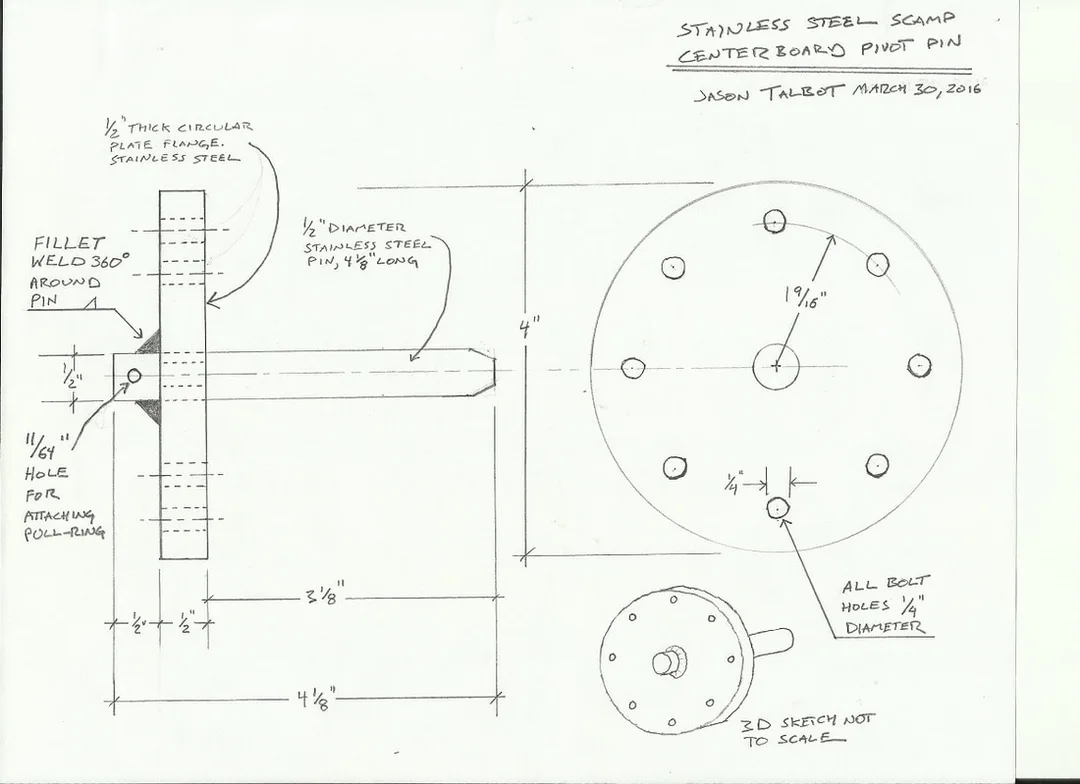 STAINLESS STEEL SCAMP
CENTERBOARD PIVOT PIN
JASON TALBOT MARCH 30, 2016
1/2" THICK CIRCULAR
PLATE FLANGE.
STAINLESS STEEL
FILLET
WELD 360°
AROUND
PIN
1/2" DIAMETER
STAINLESS STEEL
PIN, 4 1/8" LONG
1/2"
11/64"
HOLE
FOR
ATTACHING
PULL-RING
4"
1 9/16"
1/4"
3 1/8"
1/2"
1/2"
4 1/8"
ALL BOLT
HOLES 1/4"
DIAMETER
3D SKETCH NOT
TO SCALE